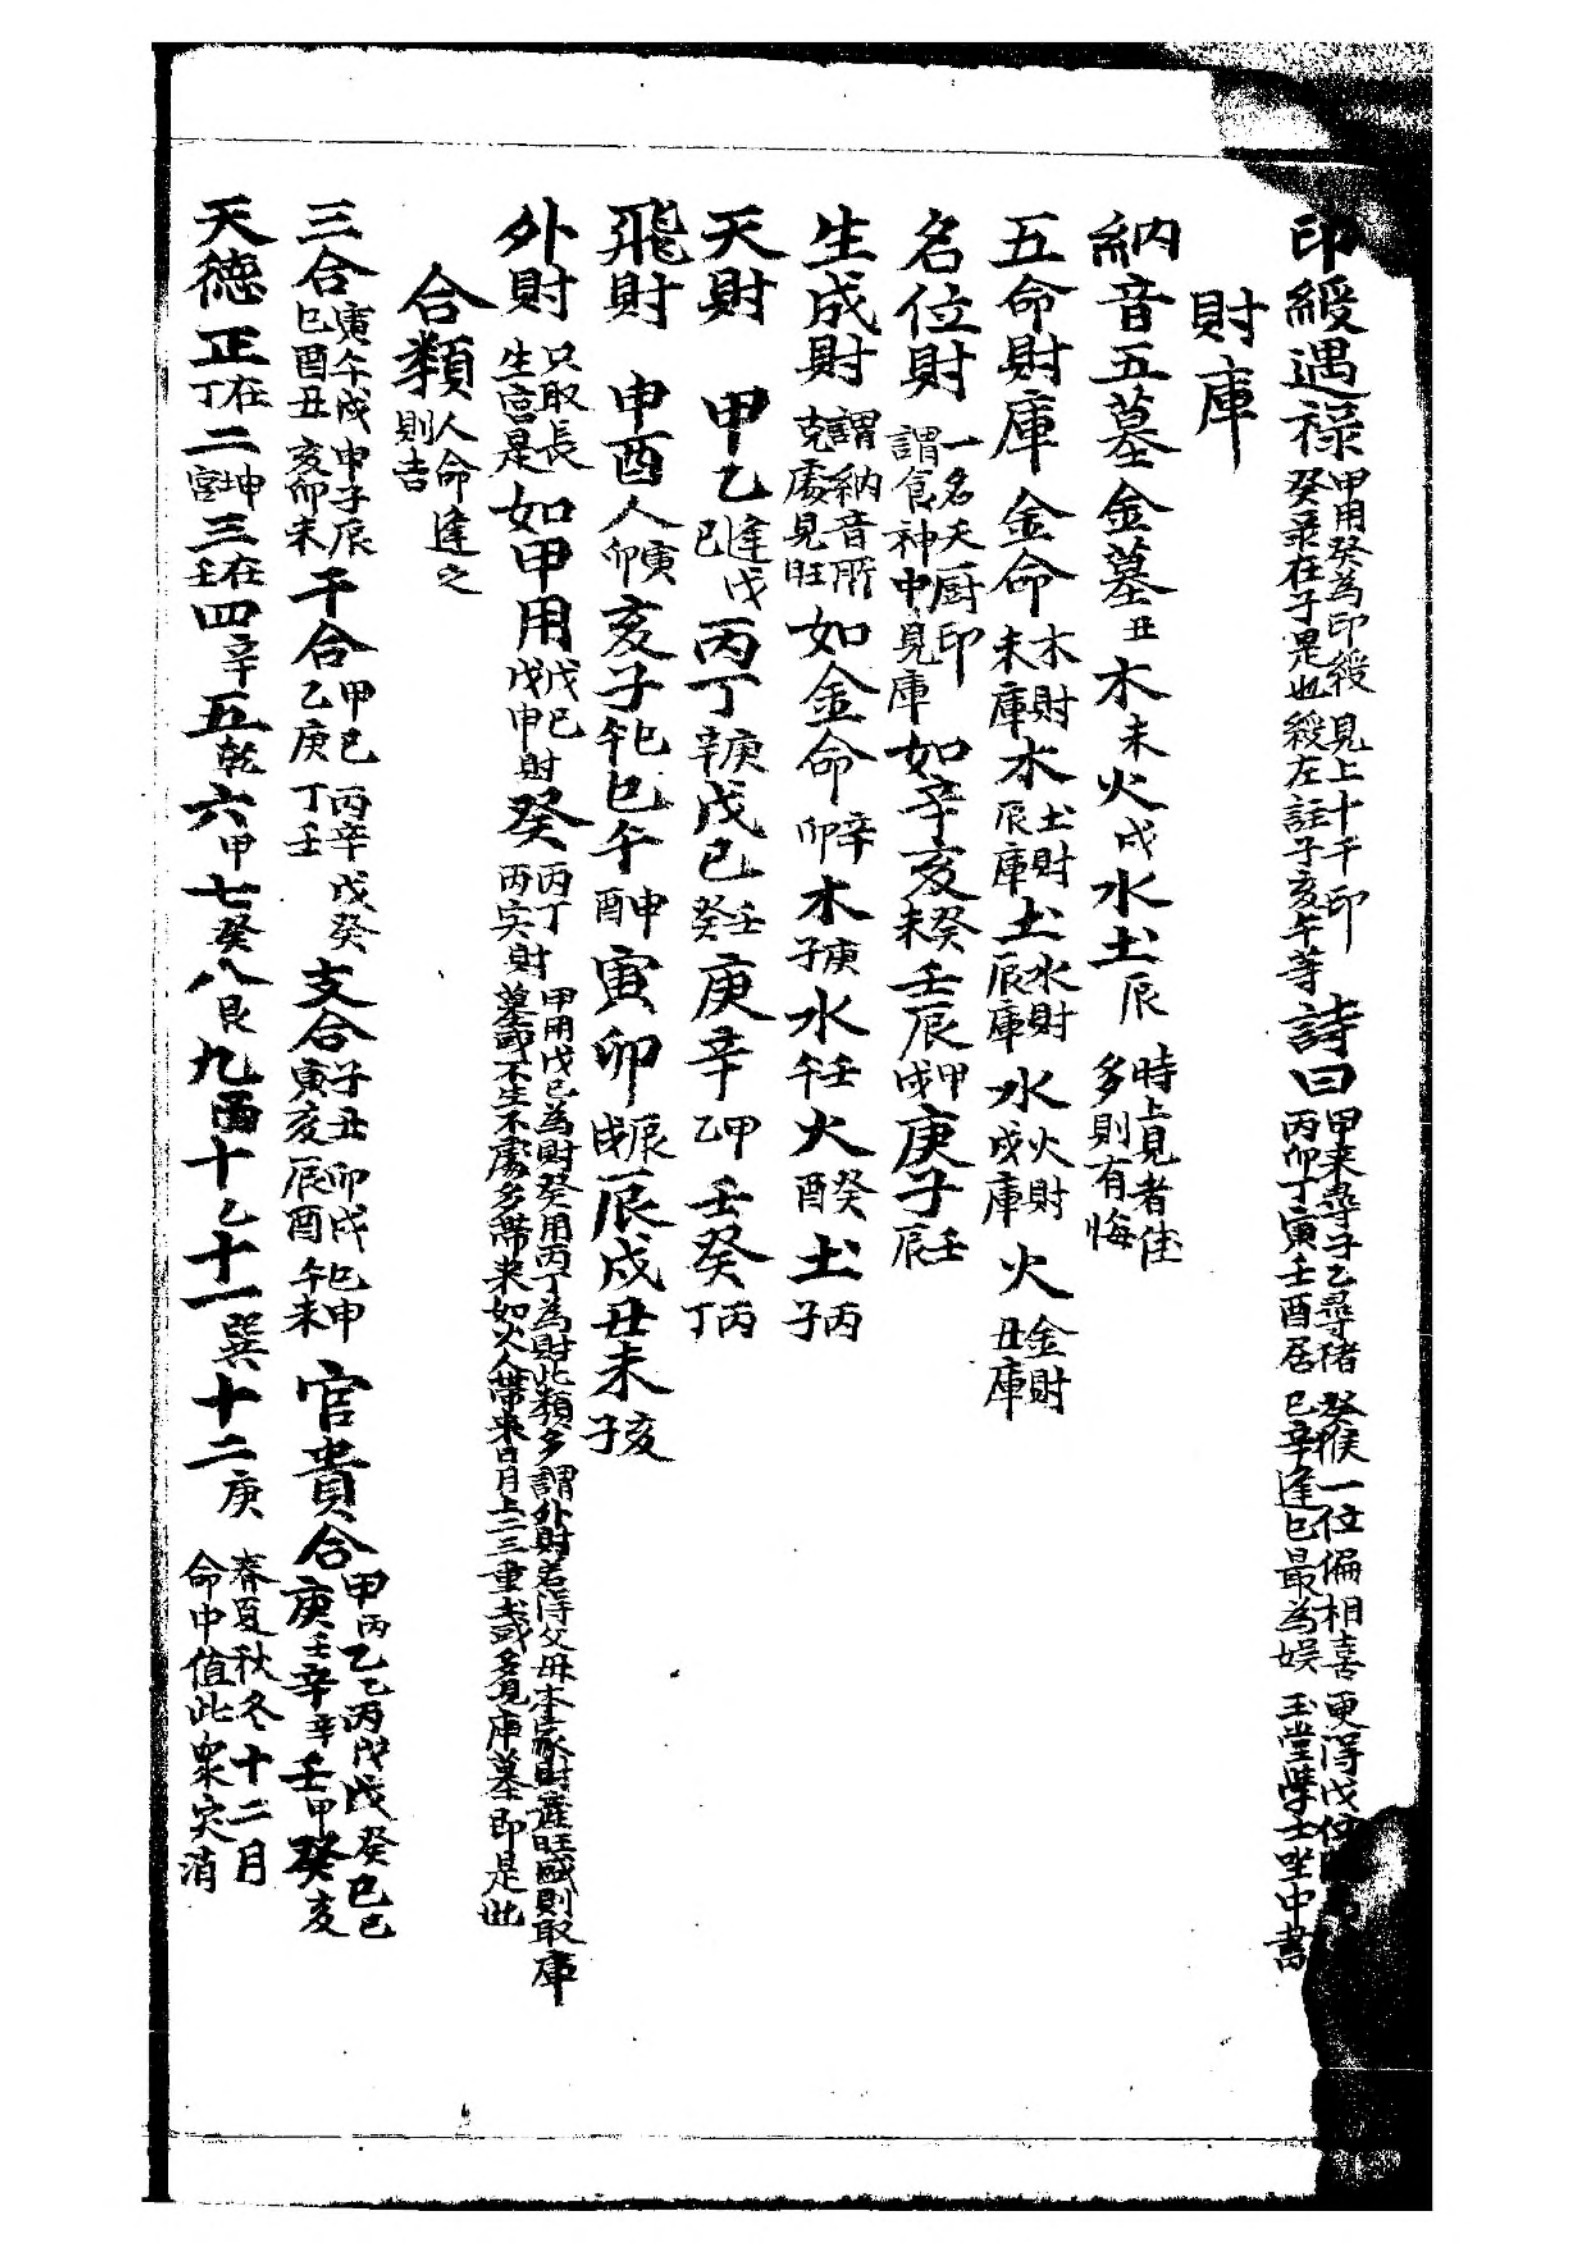 印綬遇禄 甲用癸為印綬 癸录在子是也 見上十干印 綬左註子亥午等 詩曰 甲来尋子乙尋猪 丙卯丁寅壬酉居 癸猴一位偏相喜 己辛逢巳最為娱 更得戊 玉堂學士坐中書
財庫
納音五墓 金墓丑 木未 火戌 水土辰 時上見者佳 多則有悔
五命財庫 金命 木財 未庫 木 土財 辰庫 土 水財 辰庫 水 火財 戌庫 火 金財 丑庫
名位財 一名天厨印 謂食神中見庫 如辛亥 癸未 壬辰 甲戌 庚子 壬辰
生成財 謂納音所 克處見旺 如金命 辛卯 木 庚子 水 壬午 火 癸酉 土 丙子
天財 甲乙 逢戊己 丙丁 庚辛 戊己 壬癸 庚辛 甲乙 壬癸 丙丁
飛財 申酉人 寅卯 亥子 巳午 巳午 申酉 寅卯 辰戌 辰戌丑未 亥子
外財 只取長 生宮是 如甲用 戊己 戊申財 癸 丙丁 丙寅財 甲用戊己為財癸用丙丁為財此類多謂外財若得父母本家財產旺盛則取庫 墓或不生不處多帶来如火人帶来日月上二三重或多見庫墓即是也
合類 人命逢之 則吉
三合 寅午戌 申子辰 巳酉丑 亥卯未 干合 甲己 乙庚 丙辛 丁壬 戊癸 支合 子丑 寅亥 卯戌 辰酉 巳申 午未 官貴合 甲丙乙乙丙戊戊癸己己 庚壬辛辛壬甲癸亥
天德 正在丁 二坤宮 三在壬 四辛 五乾 六甲 七癸 八艮 九丙 十乙 十一巽 十二庚 春夏秋冬十二月 命中值此衆灾消